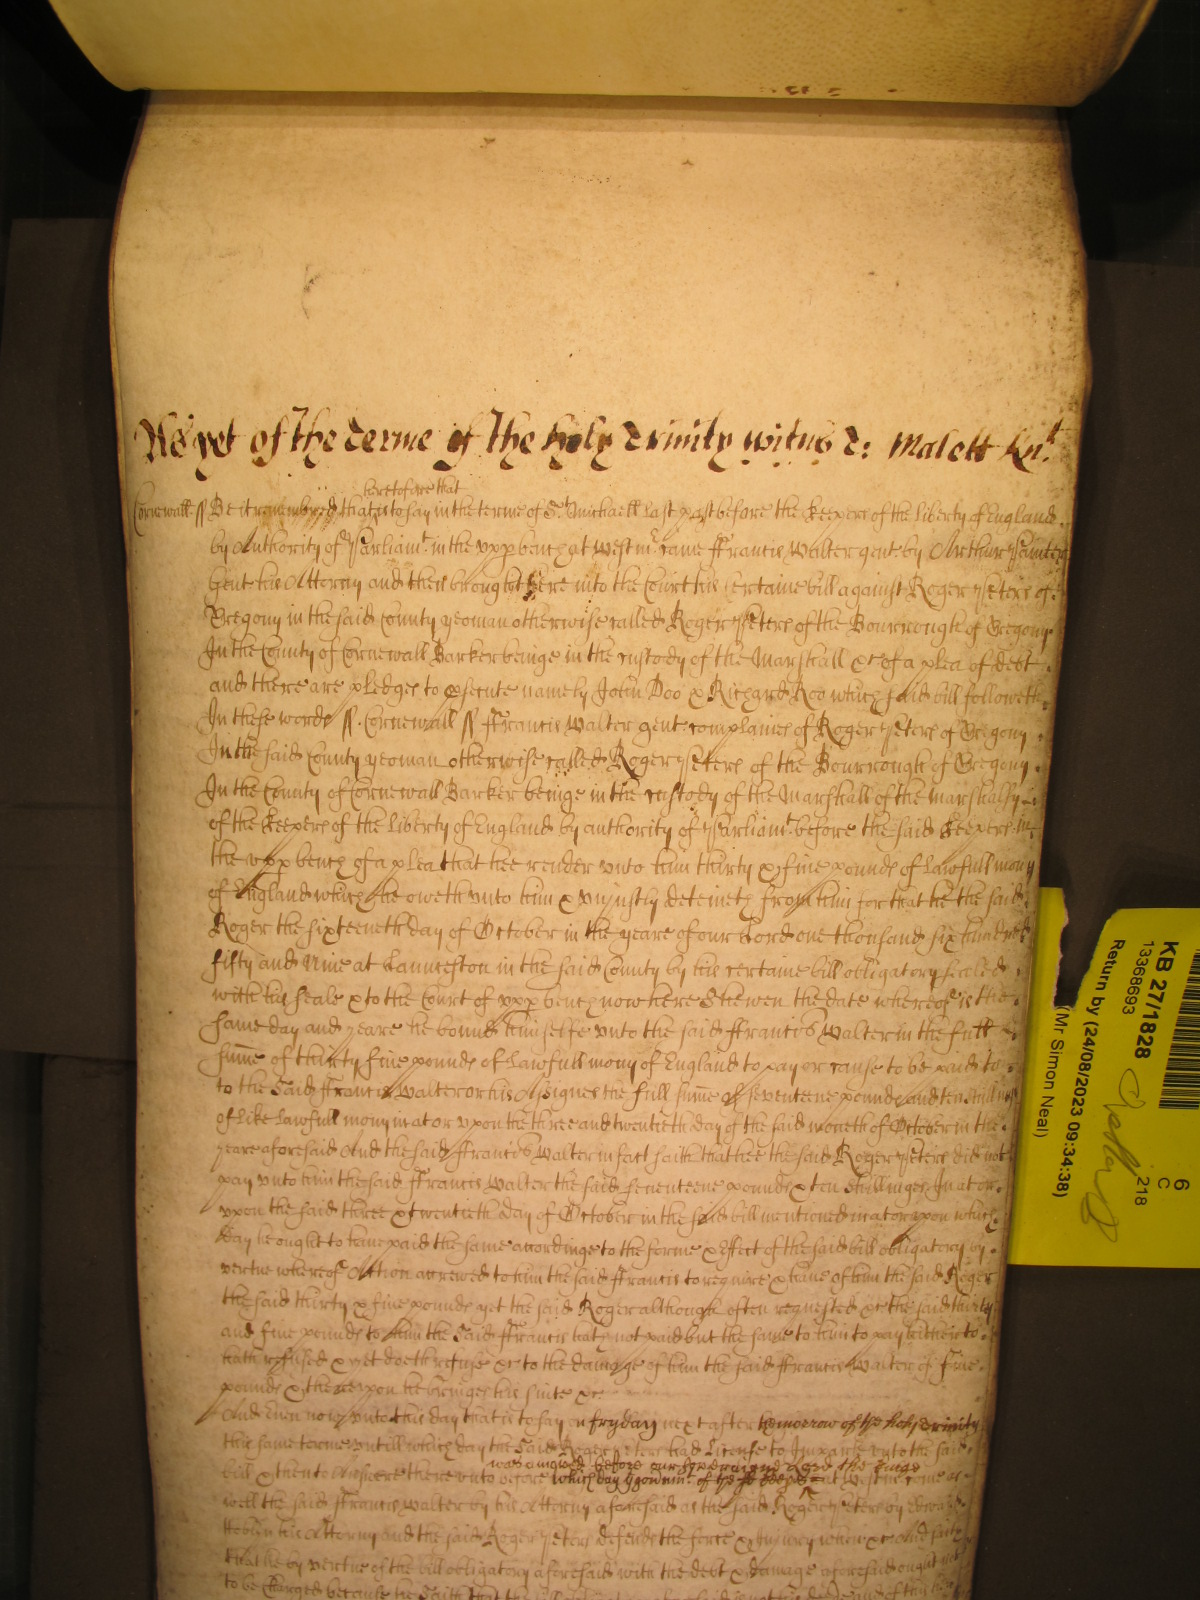 As yet of the terme of the holy Trinity witnes T: Malett kn.t
heretofore that
Cornewall ss Be it remembred that is to say in the terme of St Michaell last past before the keepers of the liberty of England
by Authority of Parliamt. in the vpp bench at Westmr. came ffrancis Walter gent by Arthur Painter
Gent his Attorny and then brought here into the Court his certaine bill against Roger Peters of
Gregony in the said County yeoman otherwise called Roger Peters of the Bourrough of Gregony
In the County of Cornewall Barker beinge in the custody of the Marshall &c of a plea of debt
and there are pledges to psecute namely John Doo & Richard Roo which said bill followeth
In these words ss. Cornewall ss ffrancis Walter gent complaines of Roger Peters of Gregony
In the said County yeoman otherwise called Roger Peters of the Bourrough of Gregony
In the County of Cornewall Barker beinge in the custody of the Marshall of the Marshalsy
of the keepers of the liberty of England by authority of Parliamt. before the said keepers in
the vpp bench of a plea that hee render vnto him thirty & fiue pounds of lawfull mony
of England which he oweth vnto him & vniustly deteineth from him for that he the said
Roger the sixteenth day of October in the yeare of our Lord one thousand six hundred
fifty and Nine at Launceston in the said County by his certaine bill obligatory sealed
with his seale & to the Court of vpp bench now here Shewen the date whereof is the
same day and yeare he bound himselfe vnto the said ffrancis Walter in the full
sume of thirty fiue pounds of lawfull mony of England to pay or cause to be paid
to the said ffrancis Walter or his Assignes the full sume of seventeene pounds and ten shillings
of like lawfull mony in at or vpon the three and twentieth day of the said moneth of October in the
yeare aforesaid And the said ffrancis Walter in fact saith that hee the said Roger Peters did not
pay vnto him the said ffrancis Walter the said seuenteene pounds & ten shillinges In at or
vpon the said three & twentieth day of October in the said bill mentioned in at or vpon which
day he ought to haue paid the same accordinge to the forme & effect of the said bill obligatory by
vertue whereof Action accrewed to him the said ffrancis to require & haue of him the said Roger
the said thirty & fiue pounds yet the said Roger although often requested &c the said thirty
and fiue pounds to him the said ffrancis hath not paid but the same to him to pay hitherto
hath refused & yet doeth refuse &c to the damage of him the said ffrancis Walter of fiue
pounds & thereupon he bringes his suite &c
And Euen now vnto this day that is to say on fryday next after tomorrow of the holy Trinity
this same terme vntill which day the said Roger Peters had License to Imparle vnto the said
was as[...] before our soveraigne Lord the Kinge
bill & then to Answere there vnto before which day [...] of the sd keeps at Westmr. come as
well the said ffrancis Walter by his Attorny aforesaid as the said Roger Peters by Edward
Hoblyn his Attorny and the said Roger Peters defends the force & Iniury when &c And saith
that he by vertue of the bill obligatory aforesaid with the debt & damage aforesaid ought not
to be charged because he saith that the
KB 27/1828
13368693
Return by (24/08/2023 09:34:38)
(Mr Simon Neal)
6
C
218